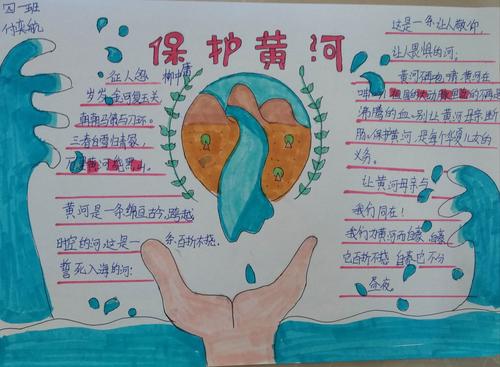 四一班
付奕航
保护黄河
征人怨
柳中庸
岁岁金河复玉关
朝朝马策与刀环。
三春白雪归青冢，
万里黄河绕黑山。
黄河是一条绵亘古今，跨越
时空的河，这是一条百折不挠，
誓死入海的河：
这是一条让人敬仰，
让人畏惧的河，
黄河啊
黄河在
沸腾的血、别让黄河母亲断
肠，保护黄河，是每个华夏儿女的
义务。
让黄河母亲与
我们同在！
我们为黄河而自豪 自豪
它百折不挠 自豪它不分
昼夜